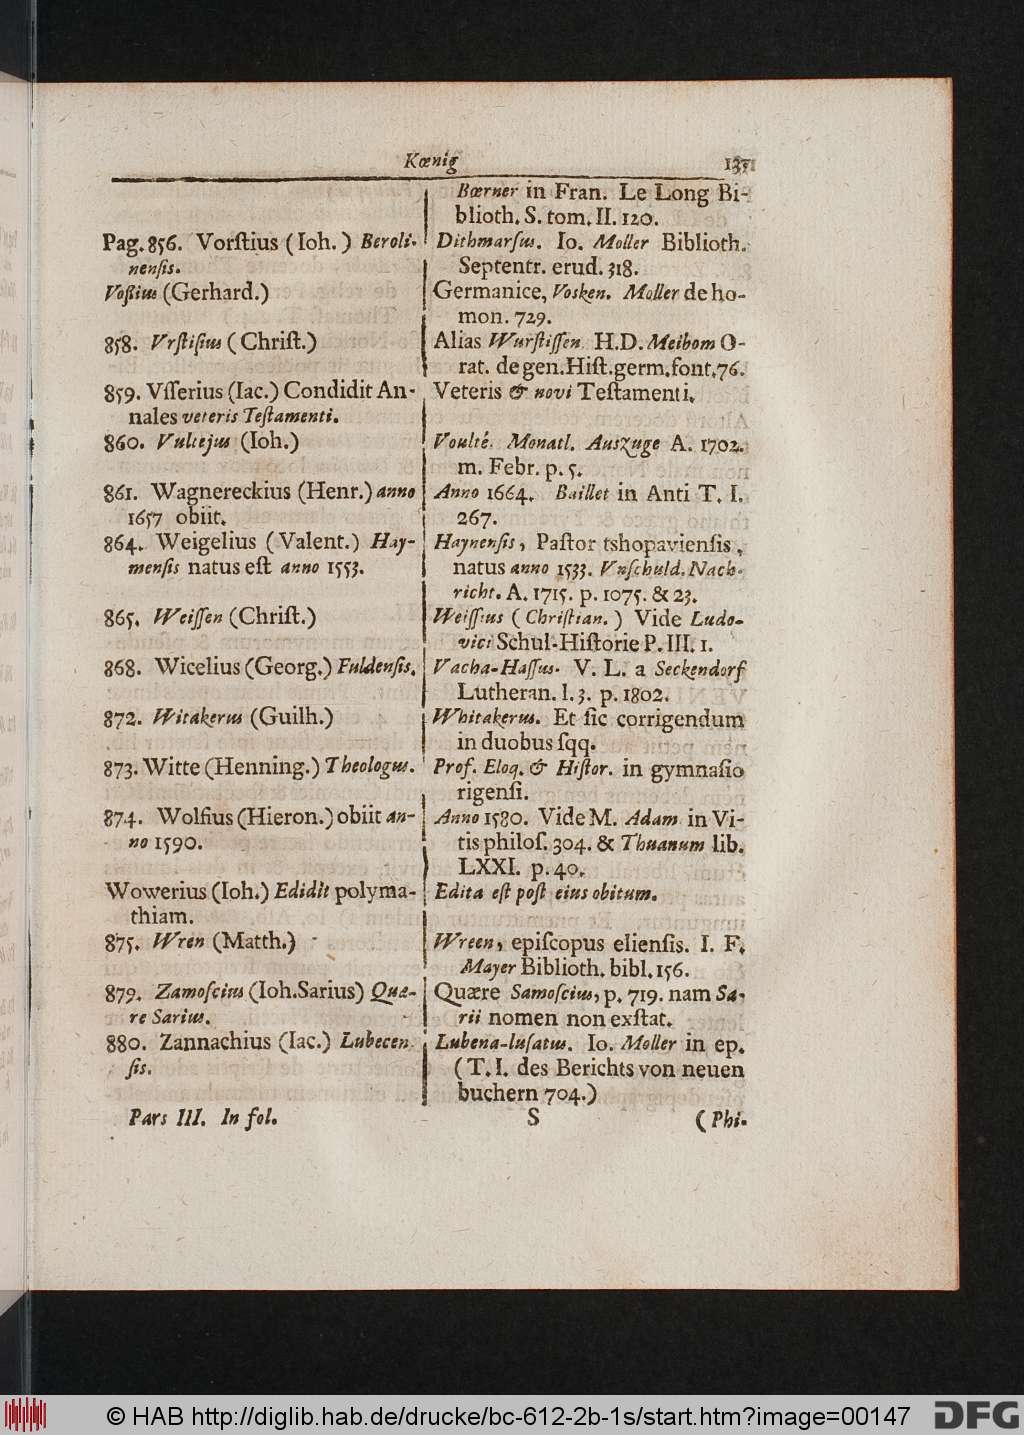 Kœnig 137
Bœrner in Fran. Le Long Bi-
blioth. S. tom. II. 120.
Pag. 856. Vorſtius (Ioh.) Beroli-
nenſis.
Dithmarſus. Io. Moller Biblioth.
Septentr. erud. 318.
Voſſius (Gerhard.)
Germanice, Vosken. Moller de ho-
mon. 729.
858. Vrſtiſius (Chriſt.)
Alias Wurſtiſſen. H. D. Meibom O-
rat. de gen. Hiſt. germ. font. 76.
859. Vſſerius (Iac.) Condidit An-
nales veteris Teſtamenti.
Veteris & novi Teſtamenti.
860. Vultejus (Ioh.)
Voulté. Monatl. Auszuge A. 1702.
m. Febr. p. 5.
861. Wagnereckius (Henr.) anno
1657 obiit.
Anno 1664. Baillet in Anti T. I.
267.
864. Weigelius (Valent.) Hay-
menſis natus eſt anno 1553.
Haynenſis, Paſtor tshopavienſis,
natus anno 1533. Vnſchuld. Nach-
richt. A. 1715. p. 1075. & 23.
865. Weiſſen (Chriſt.)
Weiſſius (Chriſtian.) Vide Ludo-
vici Schul-Hiſtorie P. III. 1.
868. Wicelius (Georg.) Fuldenſis.
Vacha-Haſſus. V. L. a Seckendorf
Lutheran. l. 3. p. 1802.
872. Witakerus (Guilh.)
Whitakerus. Et ſic corrigendum
in duobus ſqq.
873. Witte (Henning.) Theologus.
Prof. Eloq. & Hiſtor. in gymnaſio
rigenſi.
874. Wolfius (Hieron.) obiit an-
no 1590.
Anno 1580. Vide M. Adam in Vi-
tis philoſ. 304. & Thuanum lib.
LXXI. p. 40.
Wowerius (Ioh.) Edidit polyma-
thiam.
Edita eſt poſt eius obitum.
875. Wren (Matth.)
Wreen, epiſcopus elienſis. I. F.
Mayer Biblioth. bibl. 156.
879. Zamoſcius (Ioh. Sarius) Quæ-
re Sarius.
Quære Samoſcius, p. 719. nam Sa-
rii nomen non exſtat.
880. Zannachius (Iac.) Lubecen-
ſis.
Lubena-luſatus. Io. Moller in ep.
(T. I. des Berichts von neuen
buchern 704.)
Pars III. In fol. S (Phi-
© HAB http://diglib.hab.de/drucke/bc-612-2b-1s/start.htm?image=00147
DFG